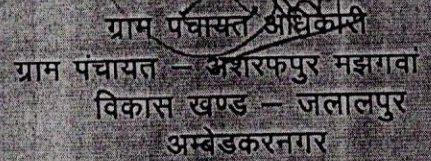 ग्राम पंचायत अधिकारी
ग्राम पंचायत – अशरफपुर मझगवां
विकास खण्ड – जलालपुर
अम्बेडकरनगर